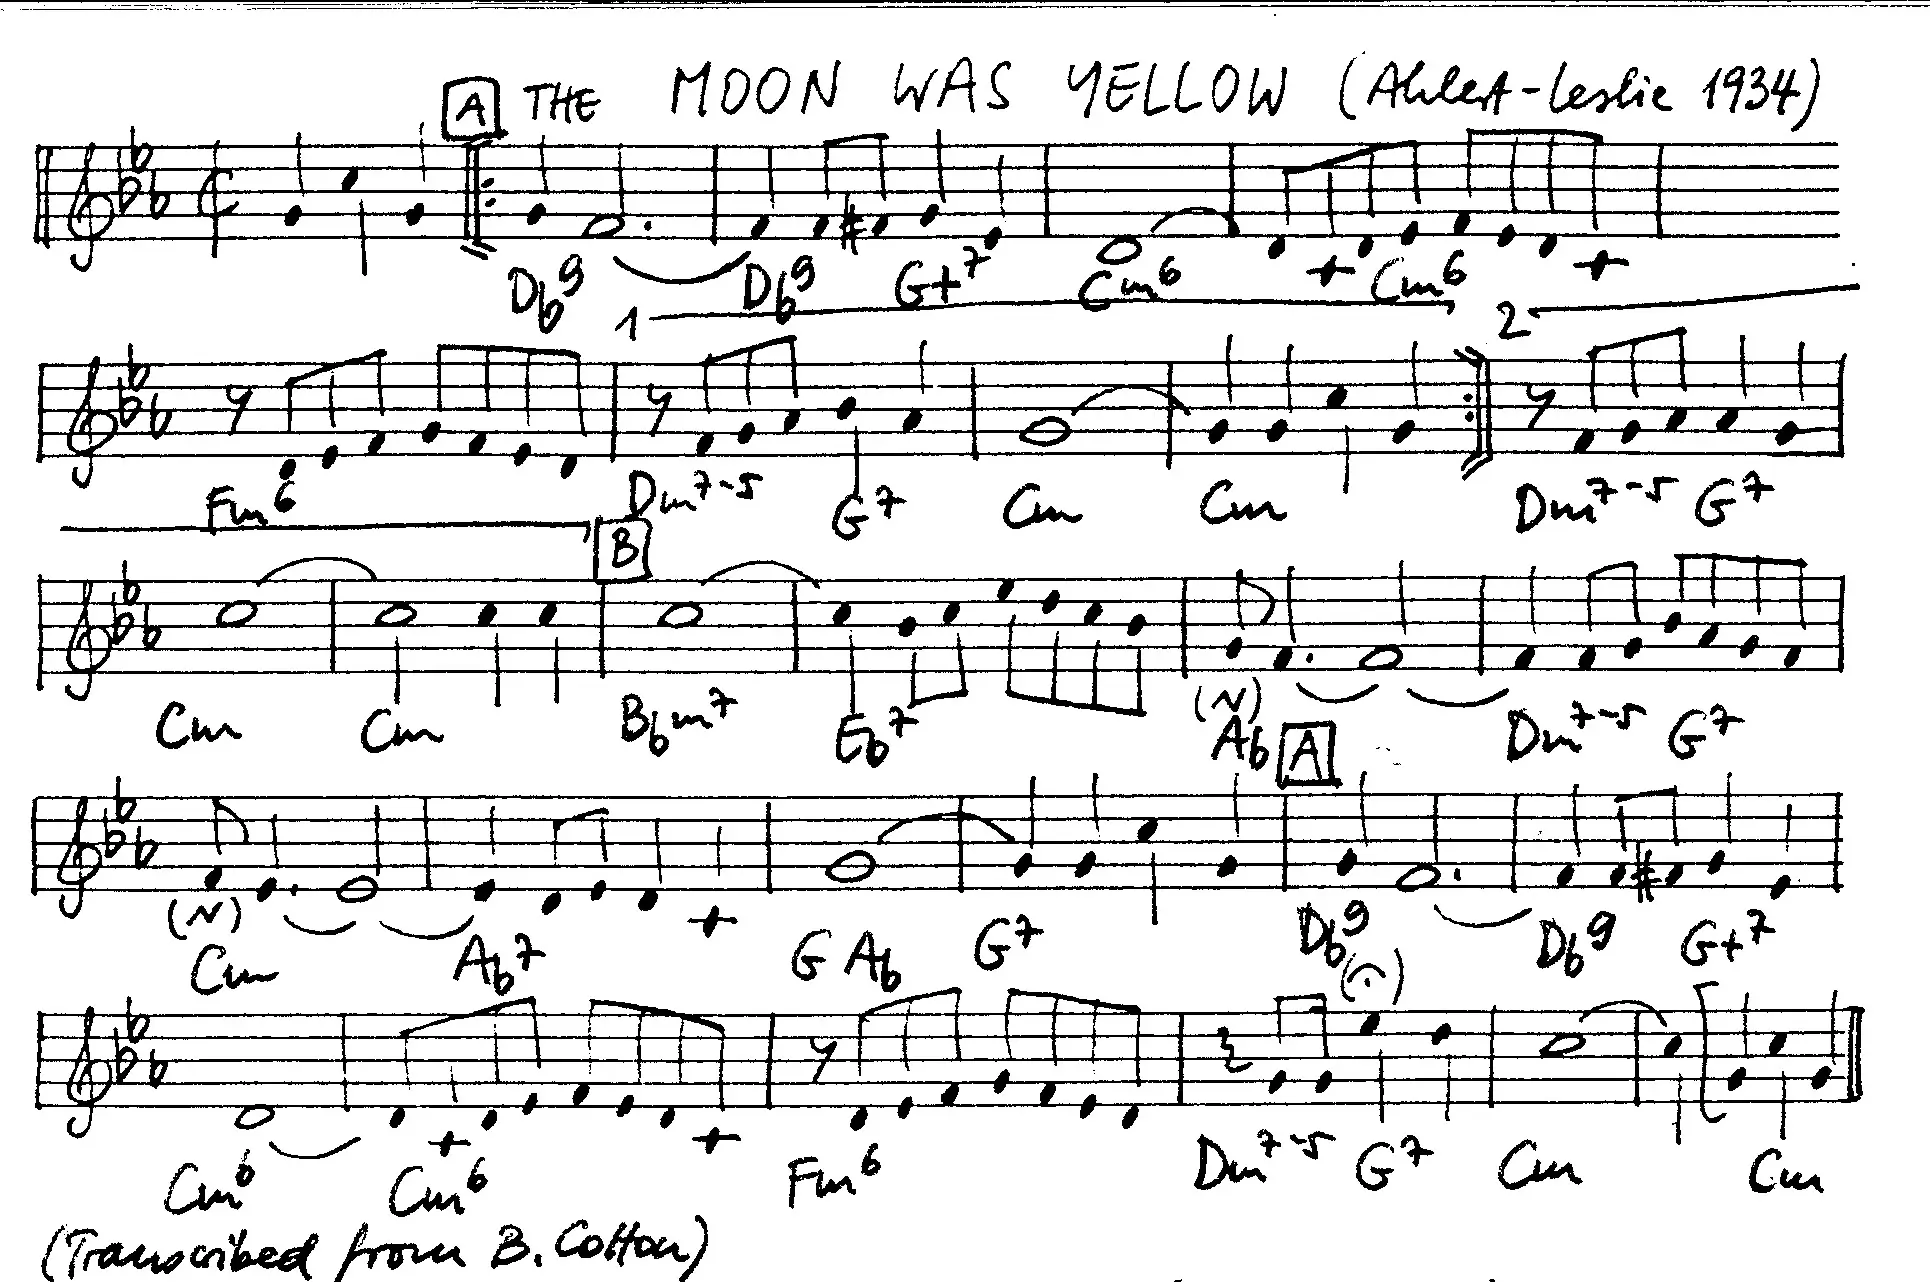 A THE MOON WAS YELLOW (Ahlert-Leslie 1934)
Db9 Db9 G+7 Cm6 Cm6
1 2
Fm6 Dm7-5 G7 Cm Cm Dm7-5 G7
B
Cm Cm Bbm7 Eb7 (N) Ab Dm7-5 G7
A
(N) Cm Ab7 G Ab G7 Db9 Db9 G+7
Cm6 Cm6 Fm6 Dm7-5 G7 Cm Cm
(Transcribed from B. Cotton)